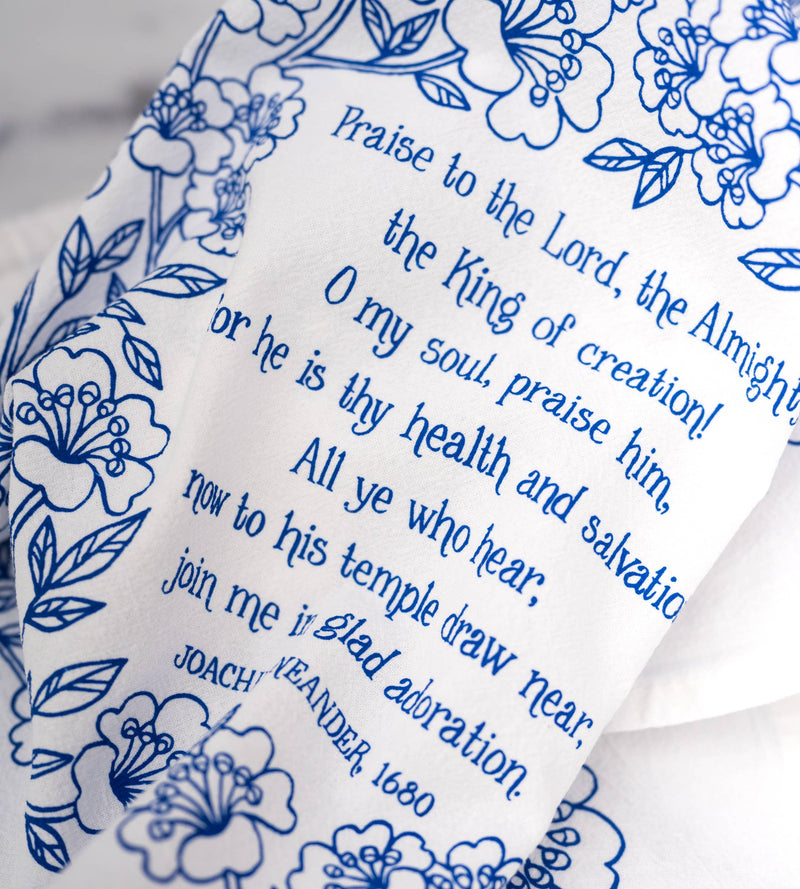 Praise to the Lord, the Almighty
the King of creation!
O my soul, praise him,
for he is thy health and salvation
All ye who hear,
now to his temple draw near,
join me in glad adoration.
JOACHIM NEANDER, 1680